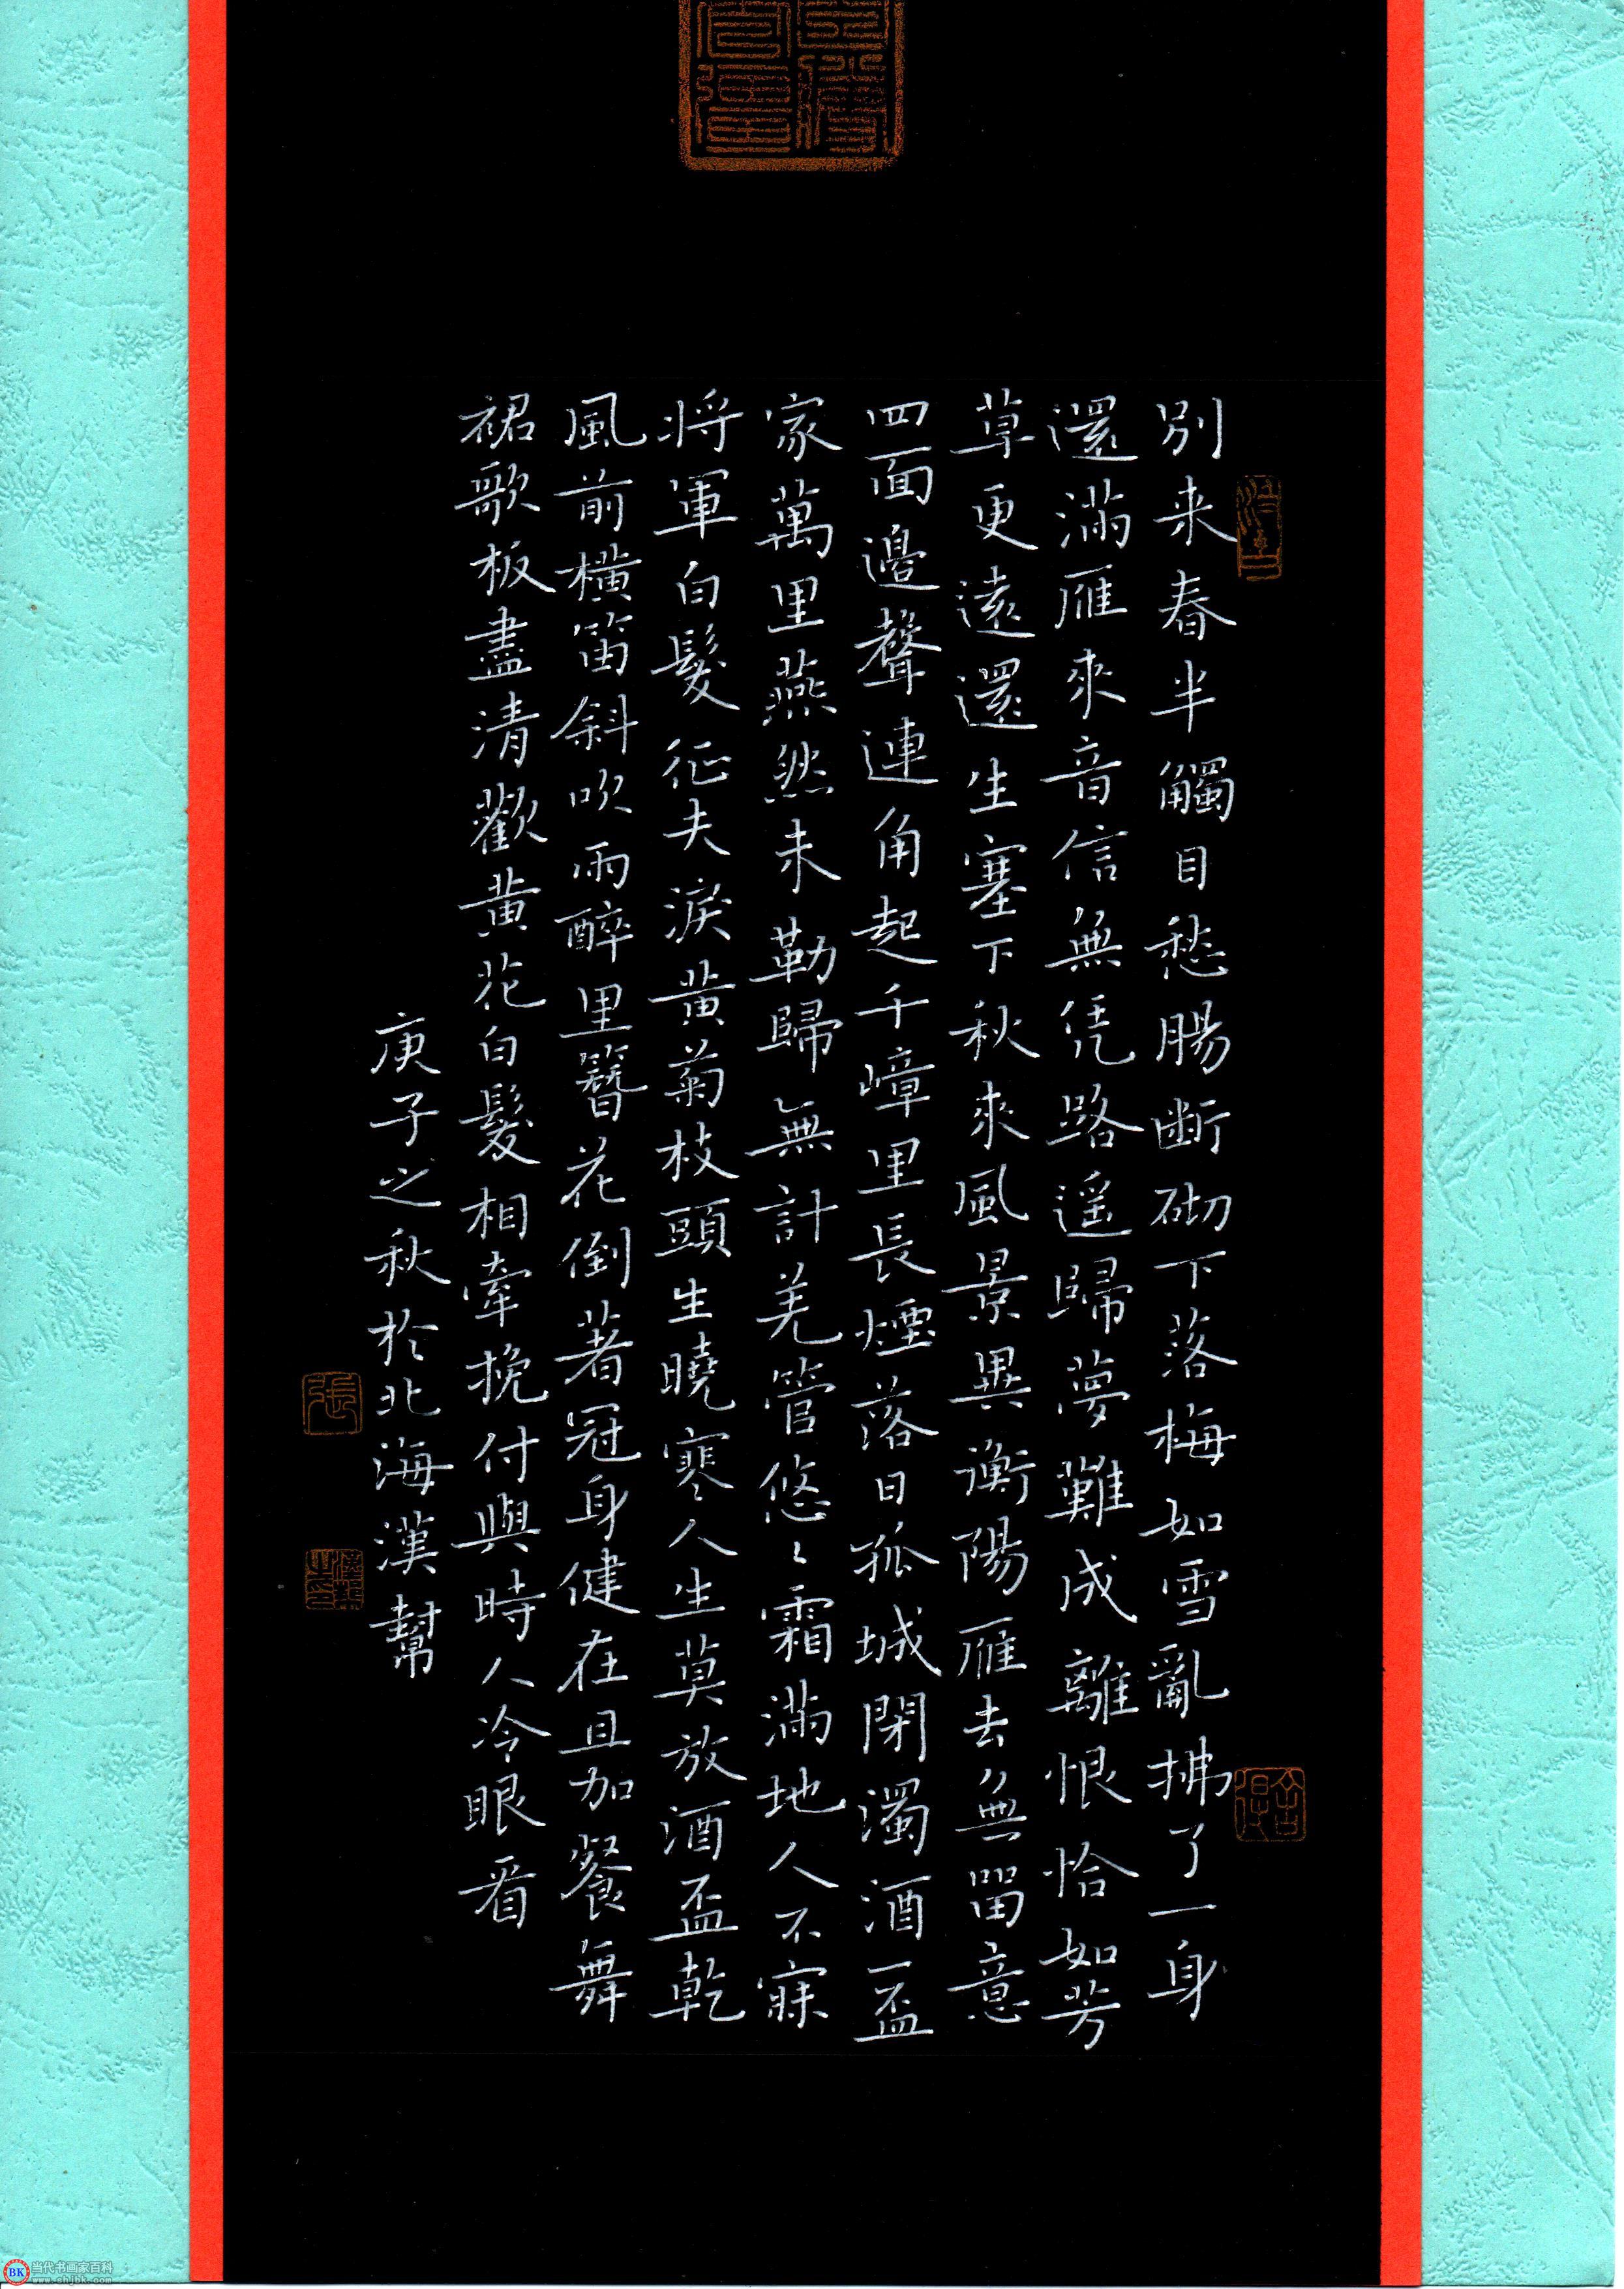 別来春半觸目愁腸断砌下落梅如雪亂拂了一身
還滿雁來音信無凭路遥歸夢難成離恨恰如芳
草更遠還生塞下秋來風景異衡陽雁去無留意
四面邊聲連角起千嶂里長煙落日孤城閉濁酒一盃
家萬里燕然未勒歸無計羌管悠々霜滿地人不寐
将軍白髮征夫淚黄菊枝頭生曉寒人生莫放酒盃乾
風前横笛斜吹雨醉里簪花倒著冠身健在且加餐舞
裙歌板盡清歡黄花白髮相牽挽付與時人冷眼看
庚子之秋於北海漢幫
張
当代书画家百科
www.shjbk.com
BK